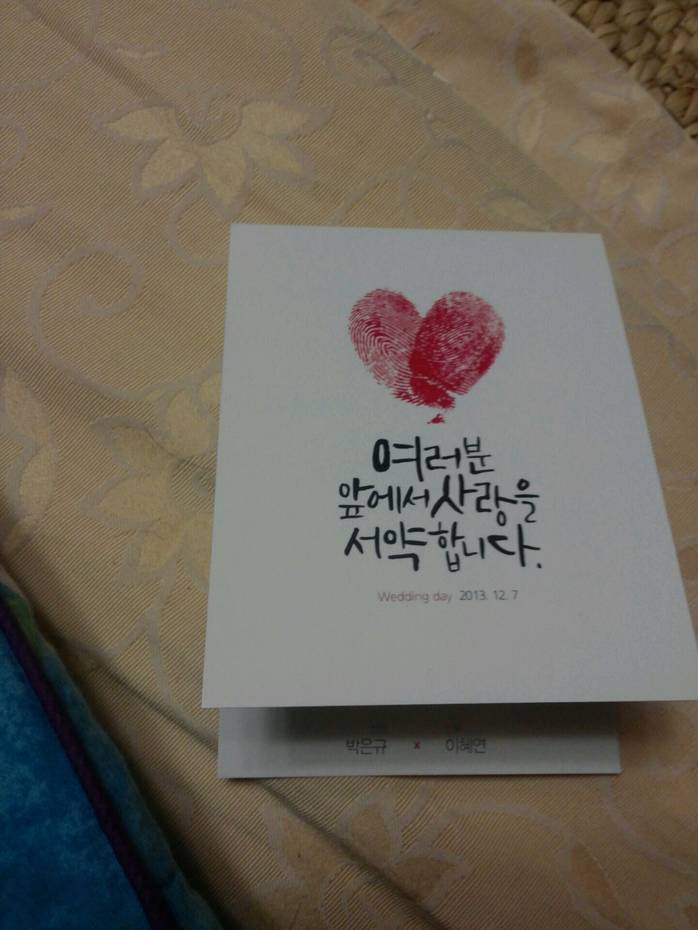 여러분
앞에서 사랑을
서약합니다.
Wedding day 2013. 12. 7
박은규 x 이혜연